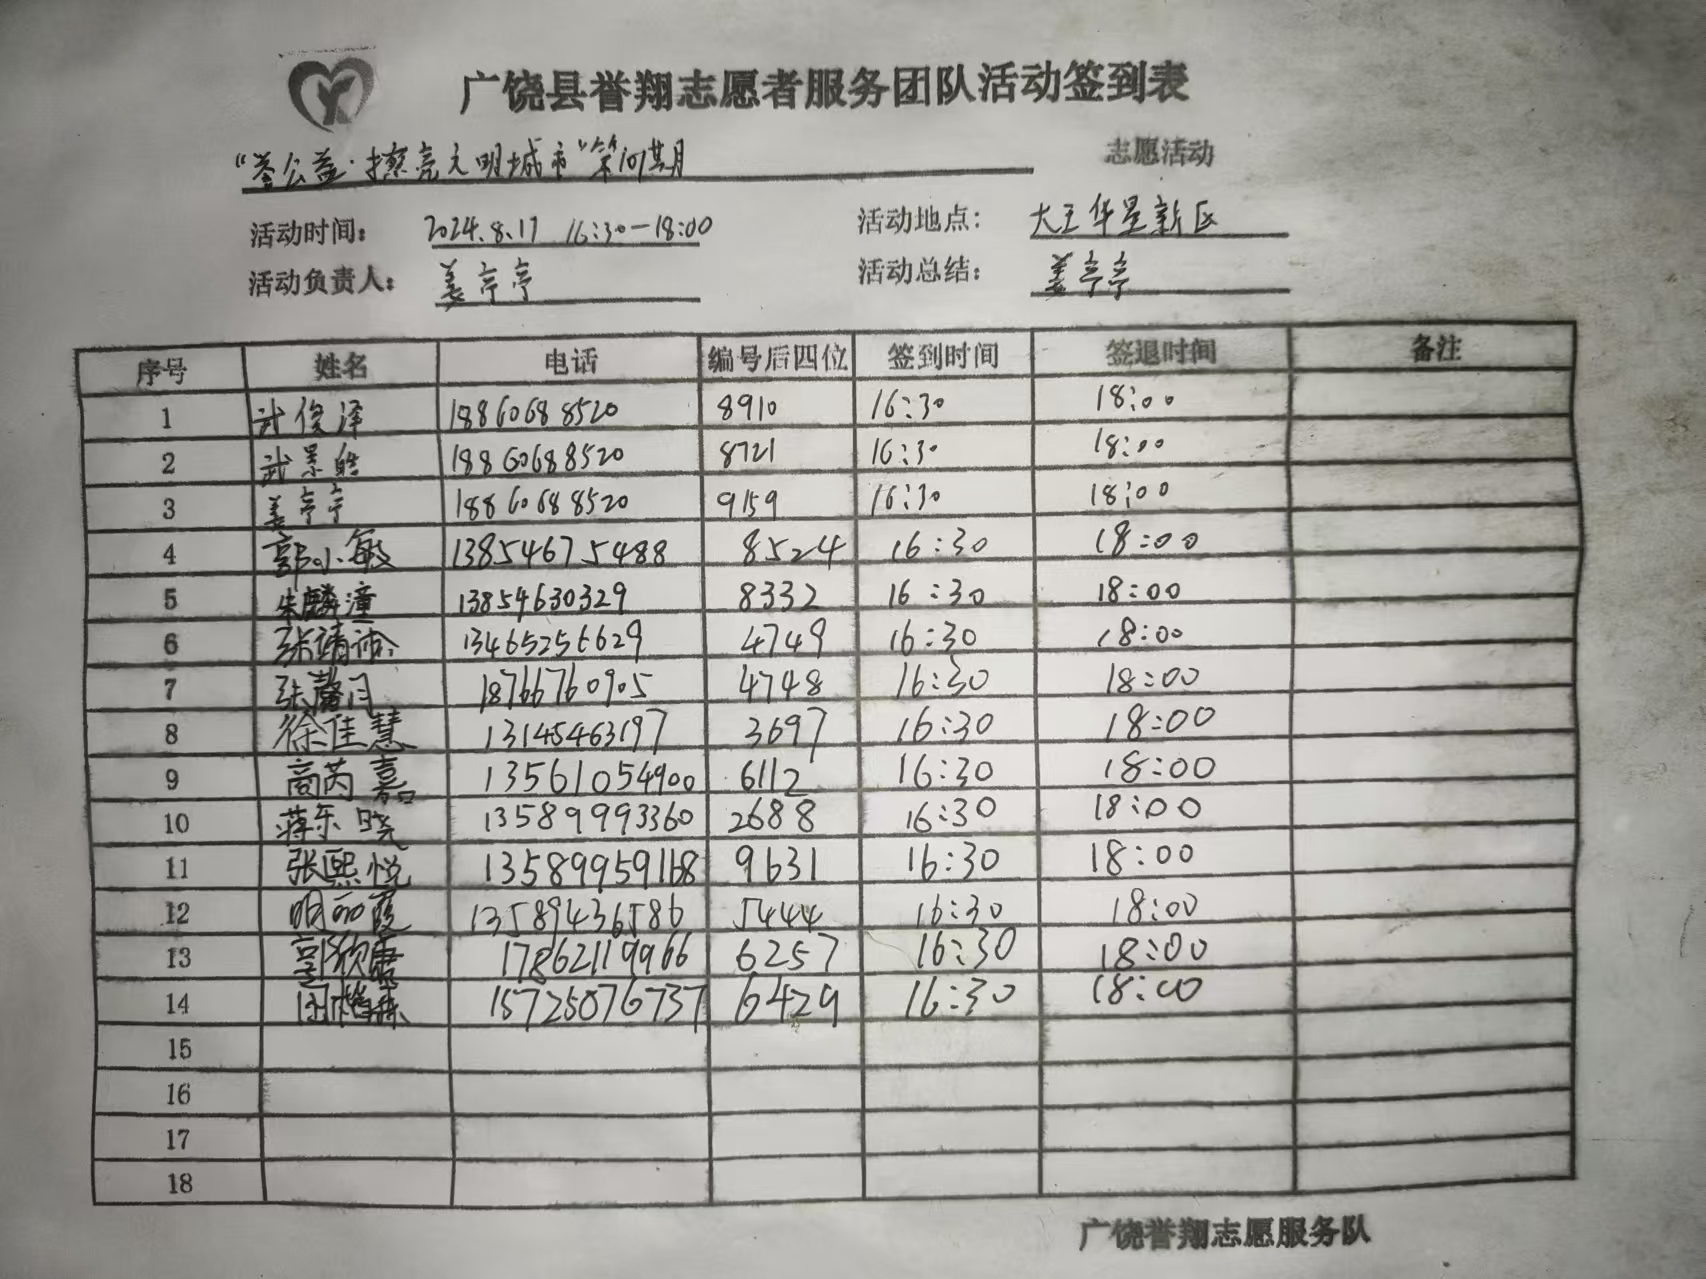 广饶县誉翔志愿者服务团队活动签到表
"誉公益·擦亮文明城市"第101期 志愿活动
活动时间: 2024.8.17 16:30-18:00 活动地点: 大王华星新区
活动负责人: 姜亭亭 活动总结: 姜亭亭
序号 姓名 电话 编号后四位 签到时间 签退时间 备注
1 武俊泽 18860688520 8910 16:30 18:00
2 武景皓 18860688520 8721 16:30 18:00
3 姜亭亭 18860688520 9159 16:30 18:00
4 郭小敏 13854675488 8524 16:30 18:00
5 朱麟潼 13854630329 8332 16:30 18:00
6 张靖 13465256629 4749 16:30 18:00
7 张馨月 18766760905 4748 16:30 18:00
8 徐佳慧 13145463197 3697 16:30 18:00
9 商芮嘉 13561054900 6112 16:30 18:00
10 蒋东晓 13589993360 2688 16:30 18:00
11 张熙悦 13589959168 9631 16:30 18:00
12 明丽霞 13589436586 5444 16:30 18:00
13 郭欣康 17862119966 6257 16:30 18:00
14 15725076737 6429 16:30 18:00
15
16
17
18
广饶誉翔志愿服务队